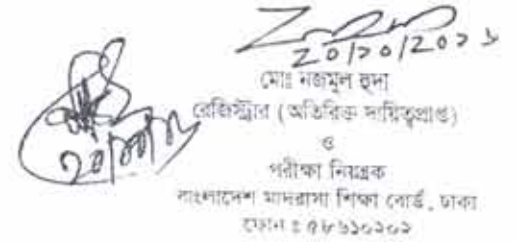 ২০/১০/২০২১
মোঃ নজমুল হুদা
রেজিস্ট্রার (অতিরিক্ত দায়িত্বপ্রাপ্ত)
ও
পরীক্ষা নিয়ন্ত্রক
বাংলাদেশ মাদরাসা শিক্ষা বোর্ড, ঢাকা
ফোন ঃ ৫৮৬১০২০২